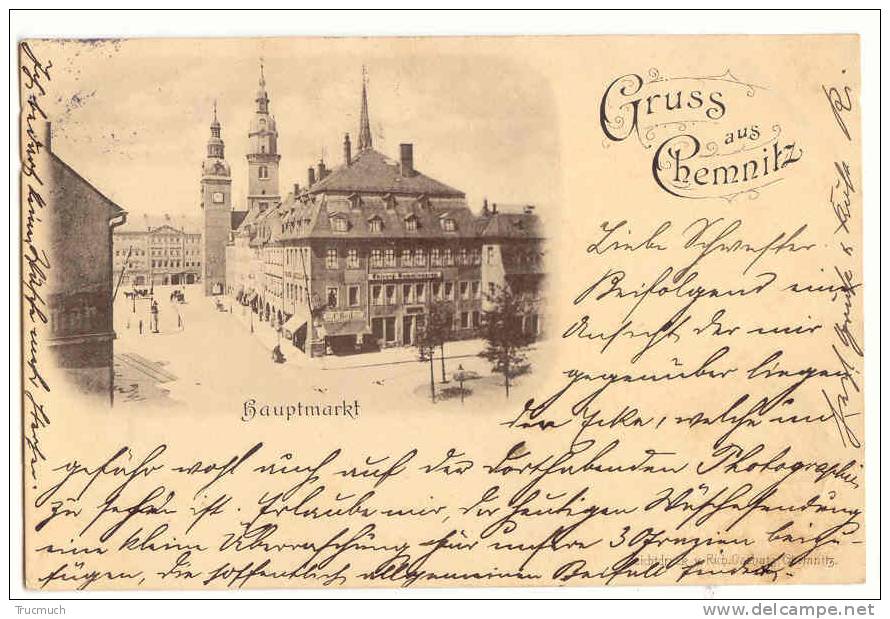 Gruss
aus
Chemnitz
Hauptmarkt
Liebe Schwester.
Beifolgend eine
Ansicht der mir
gegenüber liegen
den Ecke, welche un
gefähr wohl auch auf der dorthabenden Photographie
zu sehen ist. Erlaube mir, der heutigen Wäschesendung
eine kleine Überraschung für unsere 3 Grazien beizu-
fügen, die hoffentlich allgemeinen Beifall findet.
Herzl. Grüße & Küsse
Lichtdruck v. Rich. Chemnitz.
Trucmuch
www.delcampe.net